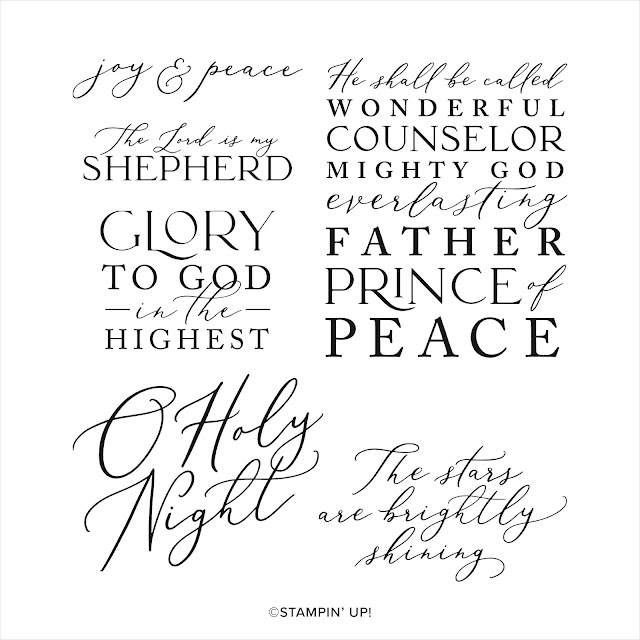 joy & peace
The Lord is my
SHEPHERD
GLORY
TO GOD
in the
HIGHEST
He shall be called
WONDERFUL
COUNSELOR
MIGHTY GOD
everlasting
FATHER
PRINCE of
PEACE
O Holy
Night
The stars
are brightly
shining
©STAMPIN' UP!